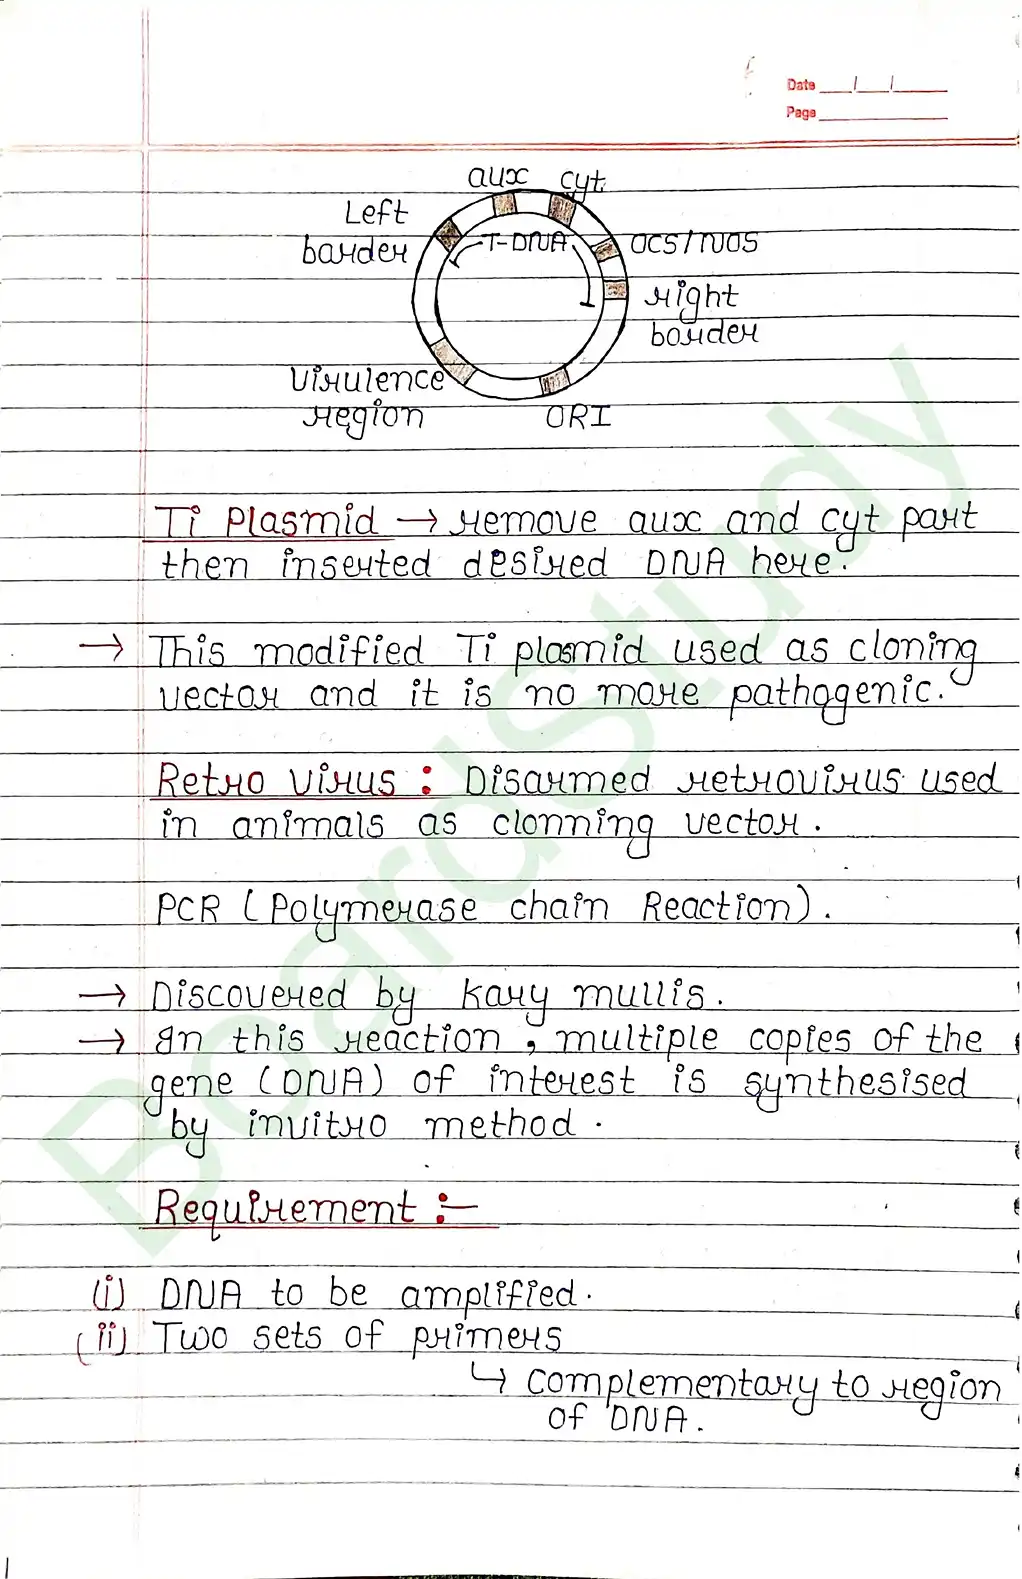 Date __/__/____
Page ________
aux cyt.
Left
border
T-DNA
OCS/NOS
right
border
Virulence
region
ORI
Ti Plasmid → remove aux and cyt part
then inserted desired DNA here.
→ This modified Ti plasmid used as cloning
vector and it is no more pathogenic.
Retro virus : Disarmed retrovirus used
in animals as clonning vector.
PCR (Polymerase chain Reaction).
→ Discovered by Kary mullis.
→ In this reaction, multiple copies of the
gene (DNA) of interest is synthesised
by invitro method.
Requirement :-
(i) DNA to be amplified.
(ii) Two sets of primers
↳ complementary to region
of DNA.
BoardStudy